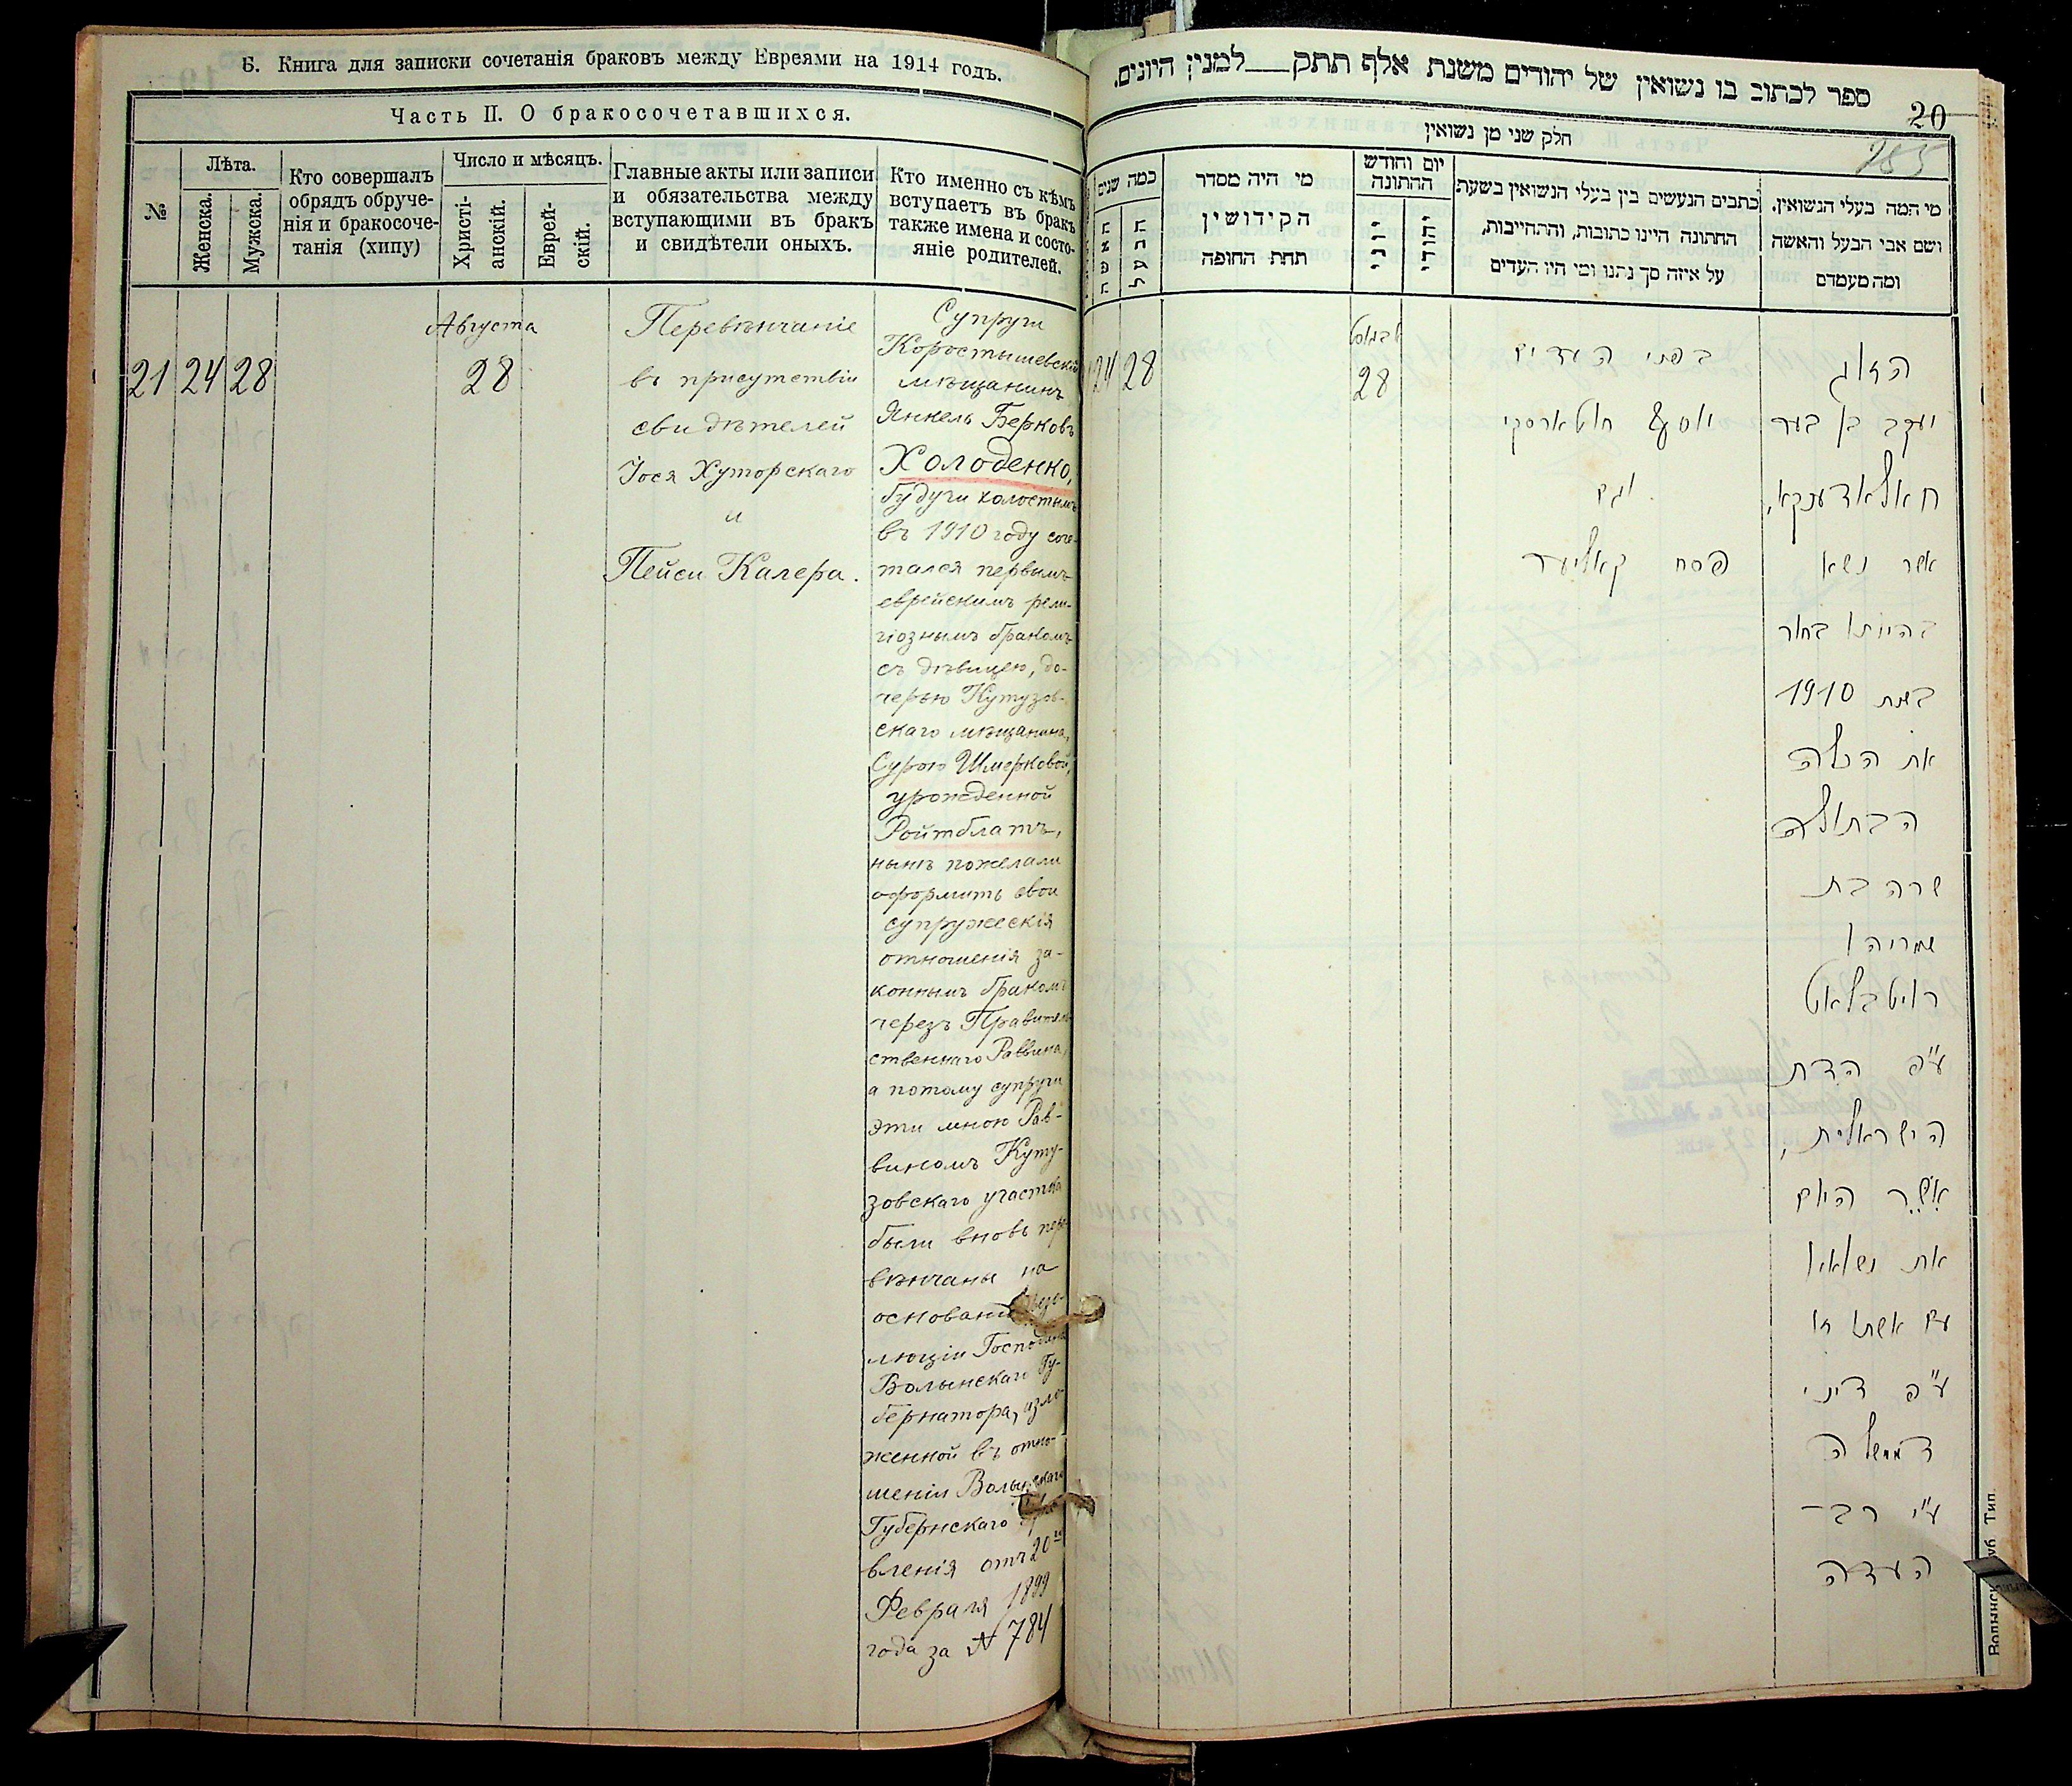 Б. Книга для записки сочетанія браковъ между Евреями на 1914 годъ.
Часть II. О бракосочетавшихся.
№
Лѣта.
Женска.
Мужска.
Кто совершалъ
обрядъ обруче-
нія и бракосоче-
танія (хипу)
Число и мѣсяцъ.
Христі-
анскій.
Еврей-
скій.
Главные акты или записи
и обязательства между
вступающими въ бракъ
и свидѣтели оныхъ.
Кто именно съ кѣмъ
вступаетъ въ бракъ
также имена и состо-
яніе родителей.
21
24
28
Августа
28
Перевѣнчаніе
въ присутствіи
свидѣтелей
Іося Хуторскаго
и
Пейси Калера.
Супруги
Коростышевскій
мѣщанинъ
Янкель Берковъ
Холоденко,
будучи холостымъ
въ 1910 году соче-
тался первымъ
еврейскимъ рели-
гіознымъ бракомъ
съ дѣвицею, до-
черью Кутузов-
скаго мѣщанина,
Сурою Шмерковой,
урожденной
Ройтблатъ,
нынѣ пожелали
оформить свои
супружескія
отношенія за-
коннымъ бракомъ
черезъ Правитель-
ственнаго Раввина,
а потому супруги
эти мною Рав-
виномъ Куту-
зовскаго участка
были вновь пере-
вѣнчаны на
основаніи резо-
люціи Господина
Волынскаго Гу-
бернатора, изло-
женной въ отно-
шеніи Волынскаго
Губернскаго Прав-
вленія отъ 20го
Февраля 1899
года за № 784
ספר לכתוב בו נשואין של יהודים משנת אלף תתק למנין היונים.
20
חלק שני מן נשואין
285
כמה שנים
האשה
הבעל
מי היה מסדר
הקידושין
תחת החופה
יום וחודש
החתונה
יוני
יהודי
כתבים הנעשים בין בעלי הנשואין בשעת
החתונה היינו כתובות, והתחייבות,
על איזה סך נתנו ומי היו העדים
מי המה בעלי הנשואין,
ושם אבי הבעל והאשה
ומה מעמדם
24
28
אבגוסט
28
בפני העדים
יוסף חוטארסקי
וגם
פסח קאליער
הזוג
יעקב בן בער
חאלאדענקא,
אשר נשא
בהיותו בחור
בשנת 1910
את הכלה
הבתולה
שרה בת
שמריהו
רויטבלאט
ע"פ הדת
הישראלית,
אשר היום
את נשואיו
עם אשתו זו
ע"פ דיני
הממשלה
ע"י רב-
העדה